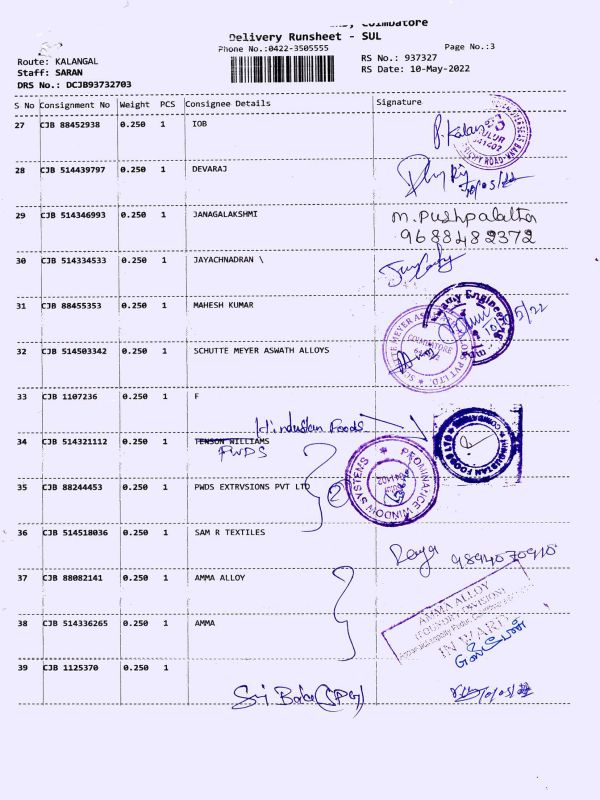 Coimbatore
Delivery Runsheet - SUL
Phone No.:0422-3505555
Page No.:3
Route: KALANGAL
Staff: SARAN
DRS No.: DCJB93732703
RS No.: 937327
RS Date: 10-May-2022
S No Consignment No Weight PCS Consignee Details Signature
27 CJB 88452938 0.250 1 IOB
28 CJB 514439797 0.250 1 DEVARAJ
29 CJB 514346993 0.250 1 JANAGALAKSHMI M. Pushpalatha
9688482372
30 CJB 514334533 0.250 1 JAYACHNADRAN \
31 CJB 88455353 0.250 1 MAHESH KUMAR
32 CJB 514503342 0.250 1 SCHUTTE MEYER ASWATH ALLOYS
33 CJB 1107236 0.250 1 F
Hindustan Foods
34 CJB 514321112 0.250 1 TENSON WILLIAMS
PWDS
PROMINANCE WINDOW SYSTEMS
HINDUSTAN FOODS LTD
COIMBATORE
35 CJB 88244453 0.250 1 PWDS EXTRVSIONS PVT LTD 2
36 CJB 514518036 0.250 1 SAM R TEXTILES
9894070910
37 CJB 88082141 0.250 1 AMMA ALLOY
AMMA ALLOY
(FOUNDRY DIVISION)
IN WARD
38 CJB 514336265 0.250 1 AMMA
39 CJB 1125370 0.250 1